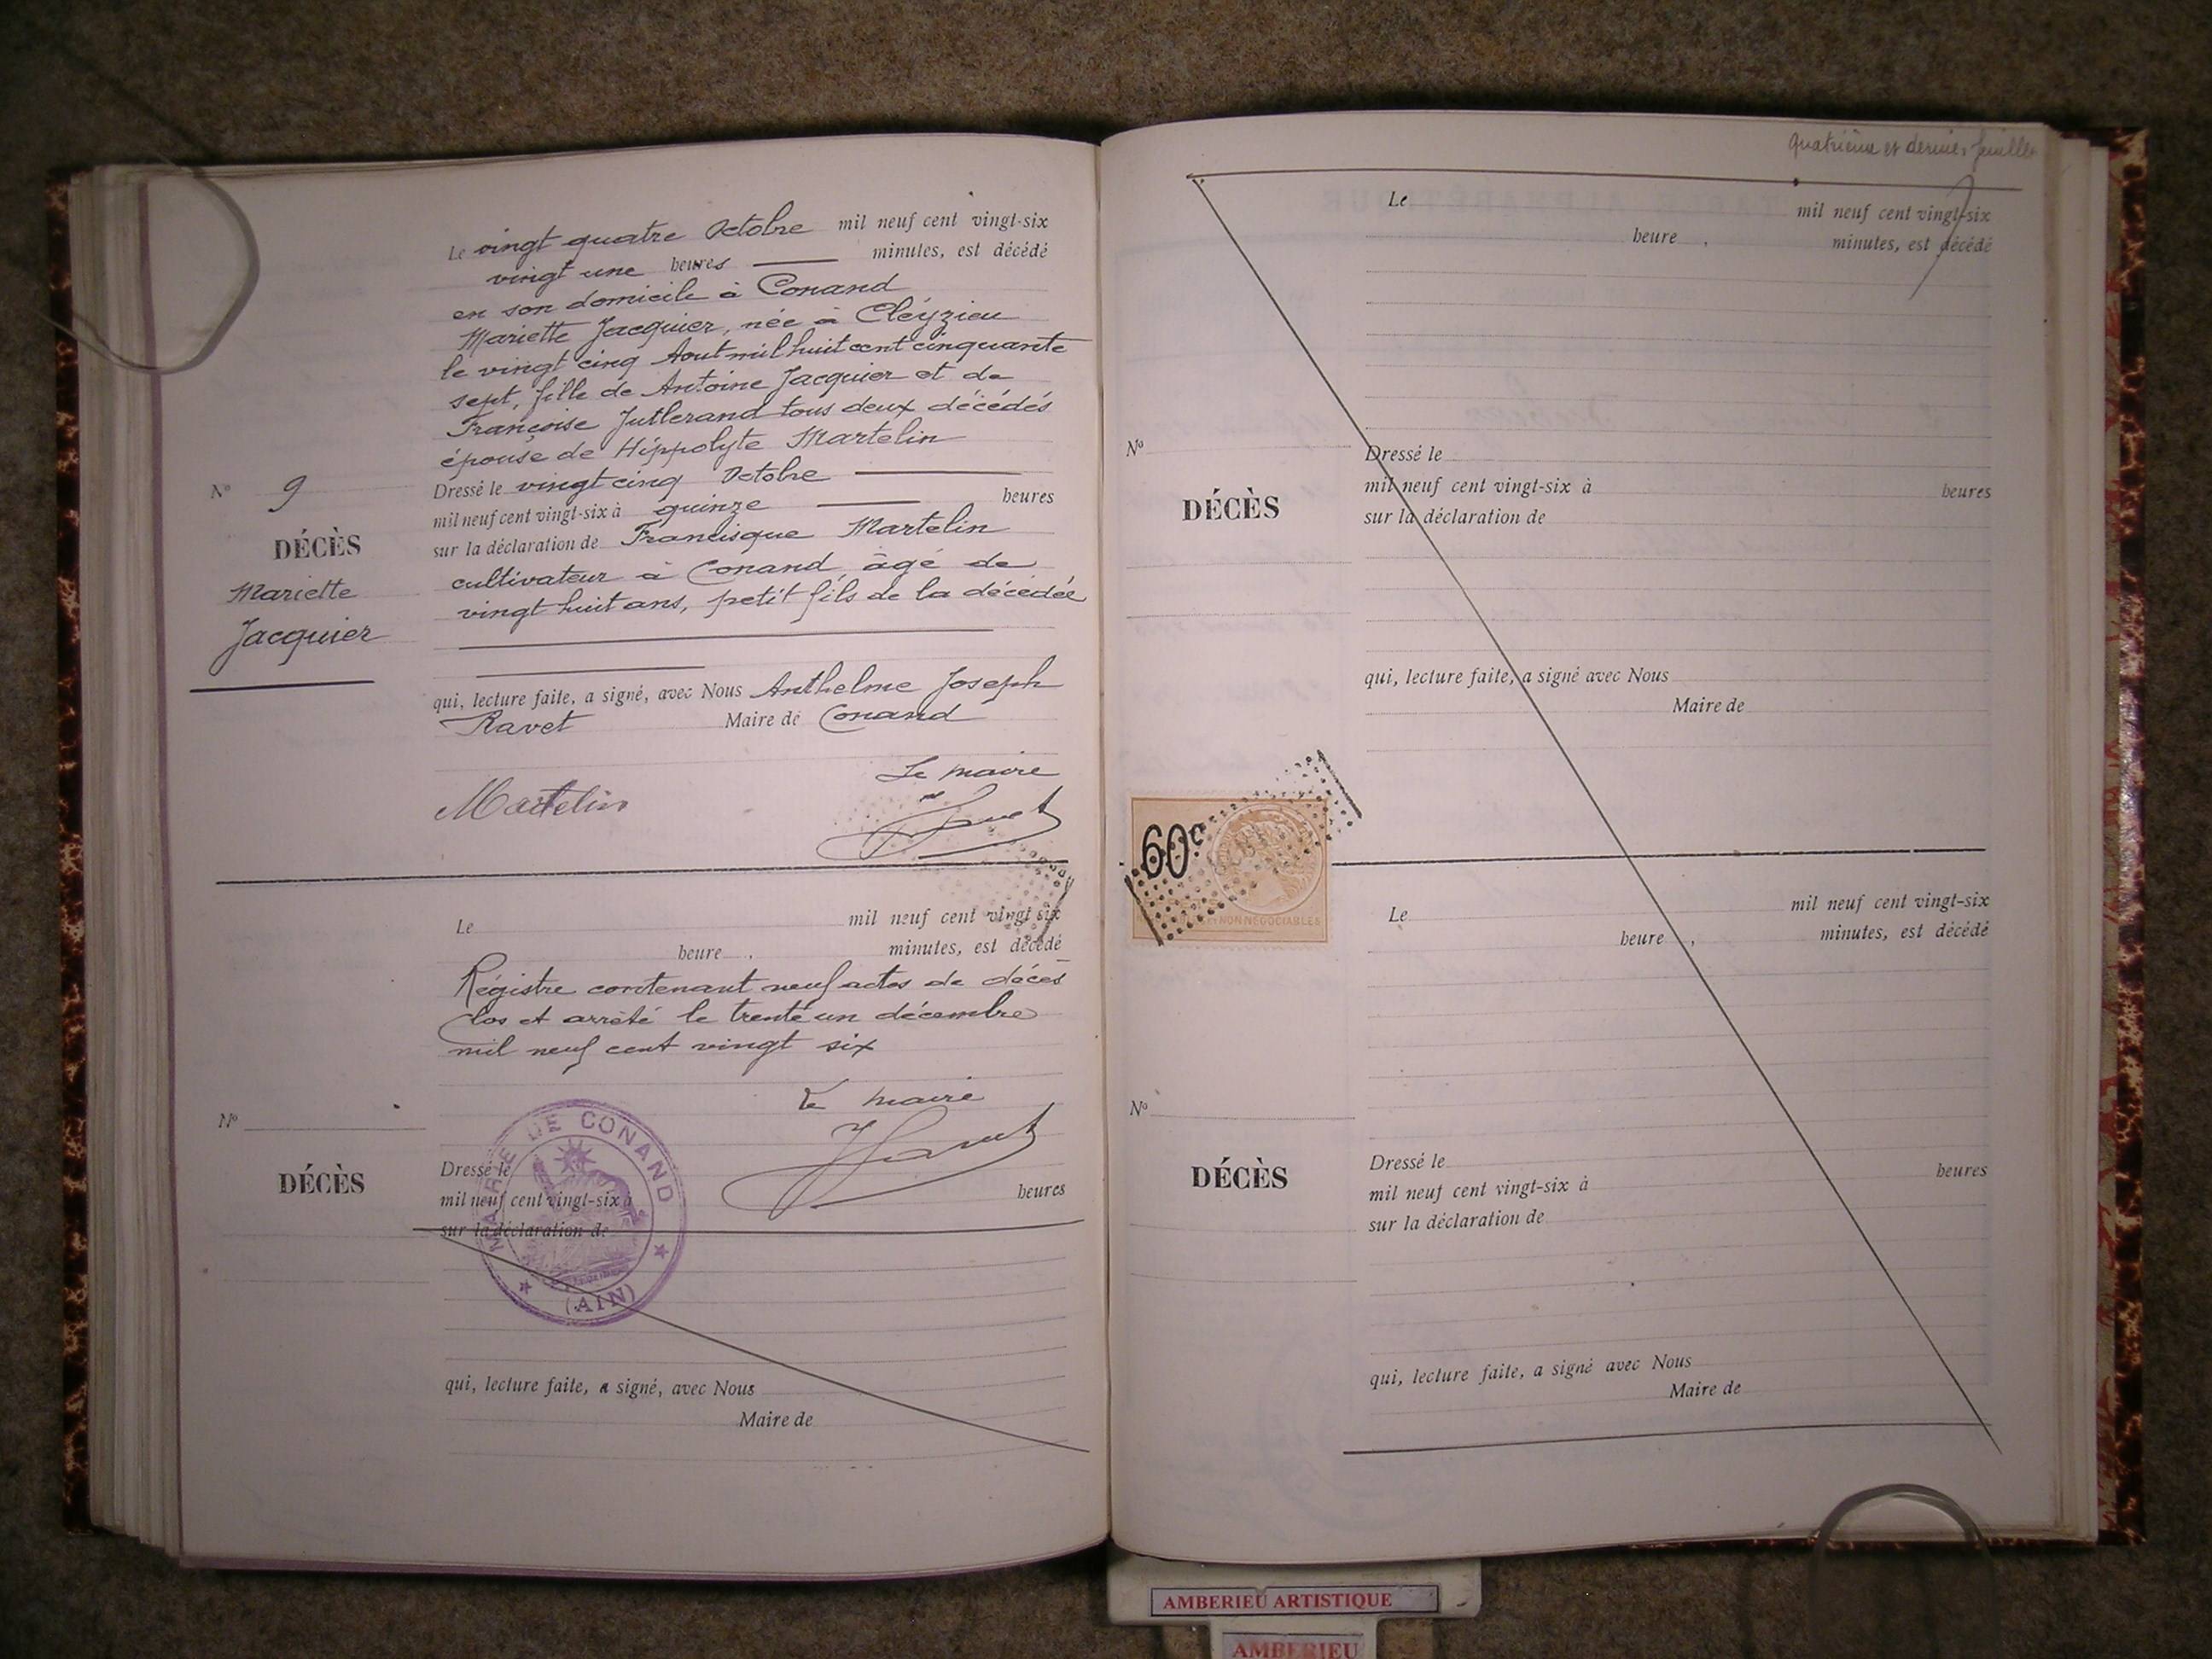 Le vingt quatre Octobre mil neuf cent vingt-six
vingt une heures minutes, est décédé
en son domicile à Conand
Mariette Jacquier, née à Cléyzieu
le vingt cinq Aout mil huit cent cinquante
sept, fille de Antoine Jacquier et de
Françoise Jutlerand tous deux décédés
épouse de Hippolyte Martelin
Nº 9
DÉCÈS
Mariette
Jacquier
Dressé le vingt cinq Octobre
mil neuf cent vingt-six à quinze heures
sur la déclaration de Francisque Martelin
cultivateur à Conand âgé de
vingt huit ans, petit fils de la décédée
qui, lecture faite, a signé, avec Nous Anthelme Joseph
Ravet Maire de Conand
Le maire
Martelin
Ravet
Le mil neuf cent vingt six
heure , minutes, est décédé
Régistre contenant neuf actes de décès
clos et arrêté le trente un décembre
mil neuf cent vingt six
Le maire
Ravet
Nº
DÉCÈS
Dressé le
mil neuf cent vingt-six à heures
sur la déclaration de
MAIRIE DE CONAND
(AIN)
qui, lecture faite, a signé, avec Nous
Maire de
quatrième et dernier feuillet
Le mil neuf cent vingt-six
heure , minutes, est décédé
Nº
DÉCÈS
Dressé le
mil neuf cent vingt-six à heures
sur la déclaration de
qui, lecture faite, a signé avec Nous
Maire de
60c
NON-NÉGOCIABLES
Le mil neuf cent vingt-six
heure , minutes, est décédé
Nº
DÉCÈS
Dressé le
mil neuf cent vingt-six à heures
sur la déclaration de
qui, lecture faite, a signé avec Nous
Maire de
AMBERIEU ARTISTIQUE
AMBERIEU